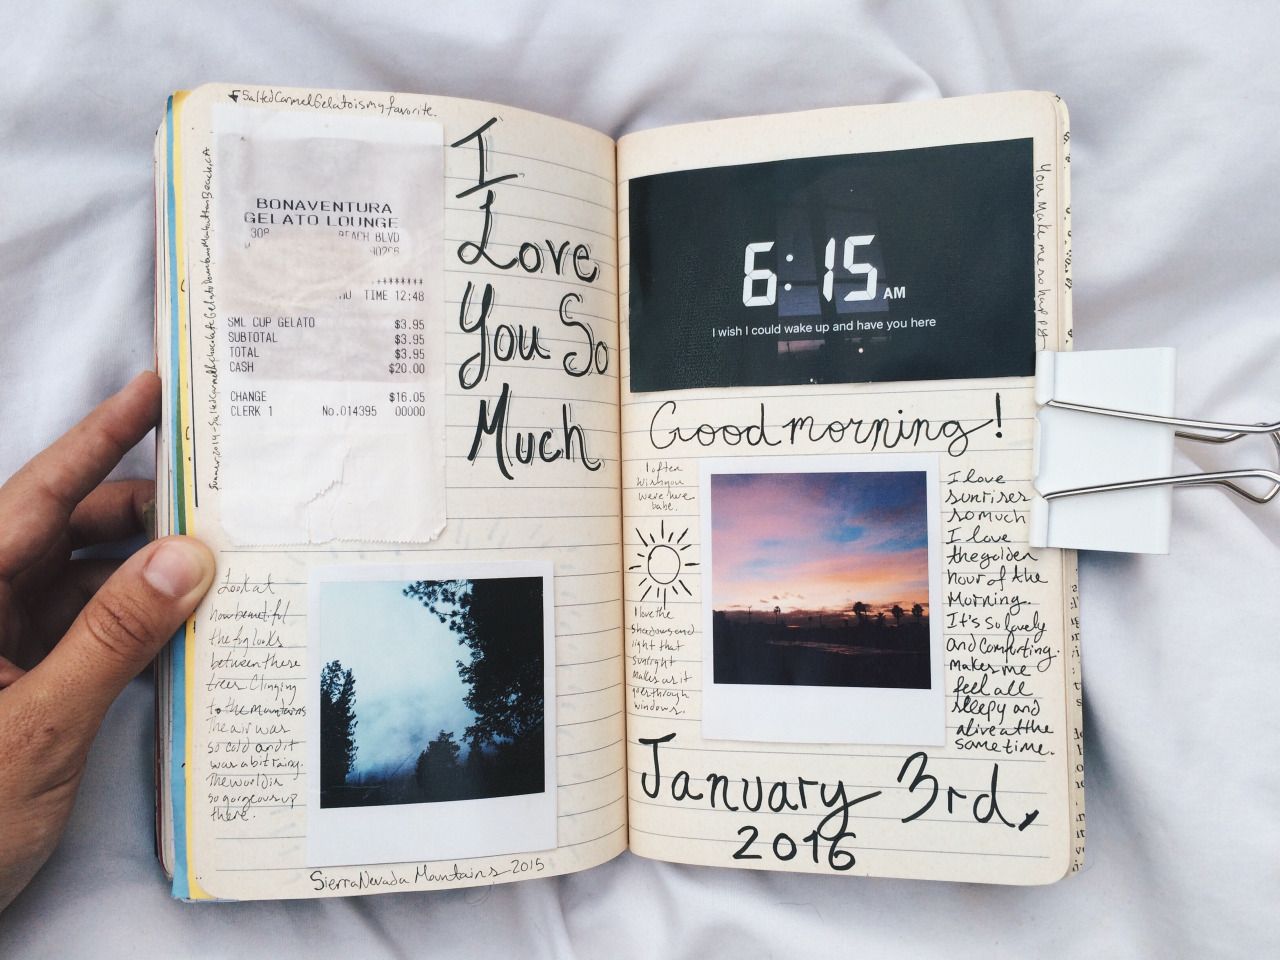 Salted Carmel Gelato is my favorite.
Summer 2014 - Salted Carmel & chocolate Gelato Downtown Manhattan Beach, CA
BONAVENTURA
GELATO LOUNGE
308 BEACH BLVD
TIME 12:48
SML CUP GELATO $3.95
SUBTOTAL $3.95
TOTAL $3.95
CASH $20.00
CHANGE $16.05
CLERK 1 No.014395 00000
I
Love
You So
Much
Look at
how beautiful
the fog looks
between these
trees. Clinging
to the mountains
The air was
so cold and it
was a bit rainy.
The world is
so gorgeous up
there.
Sierra Nevada Mountains 2015
6:15 AM
I wish I could wake up and have you here
You Make me so happy
Good morning!
I often
wish you
were here
babe.
I love the
shadows and
light that
sunlight
makes as it
goes through
windows.
I love
sunrises
so much
I love
the golden
hour of the
Morning.
It's so lovely
and comforting.
makes me
feel all
sleepy and
alive at the
same time.
January 3rd,
2016